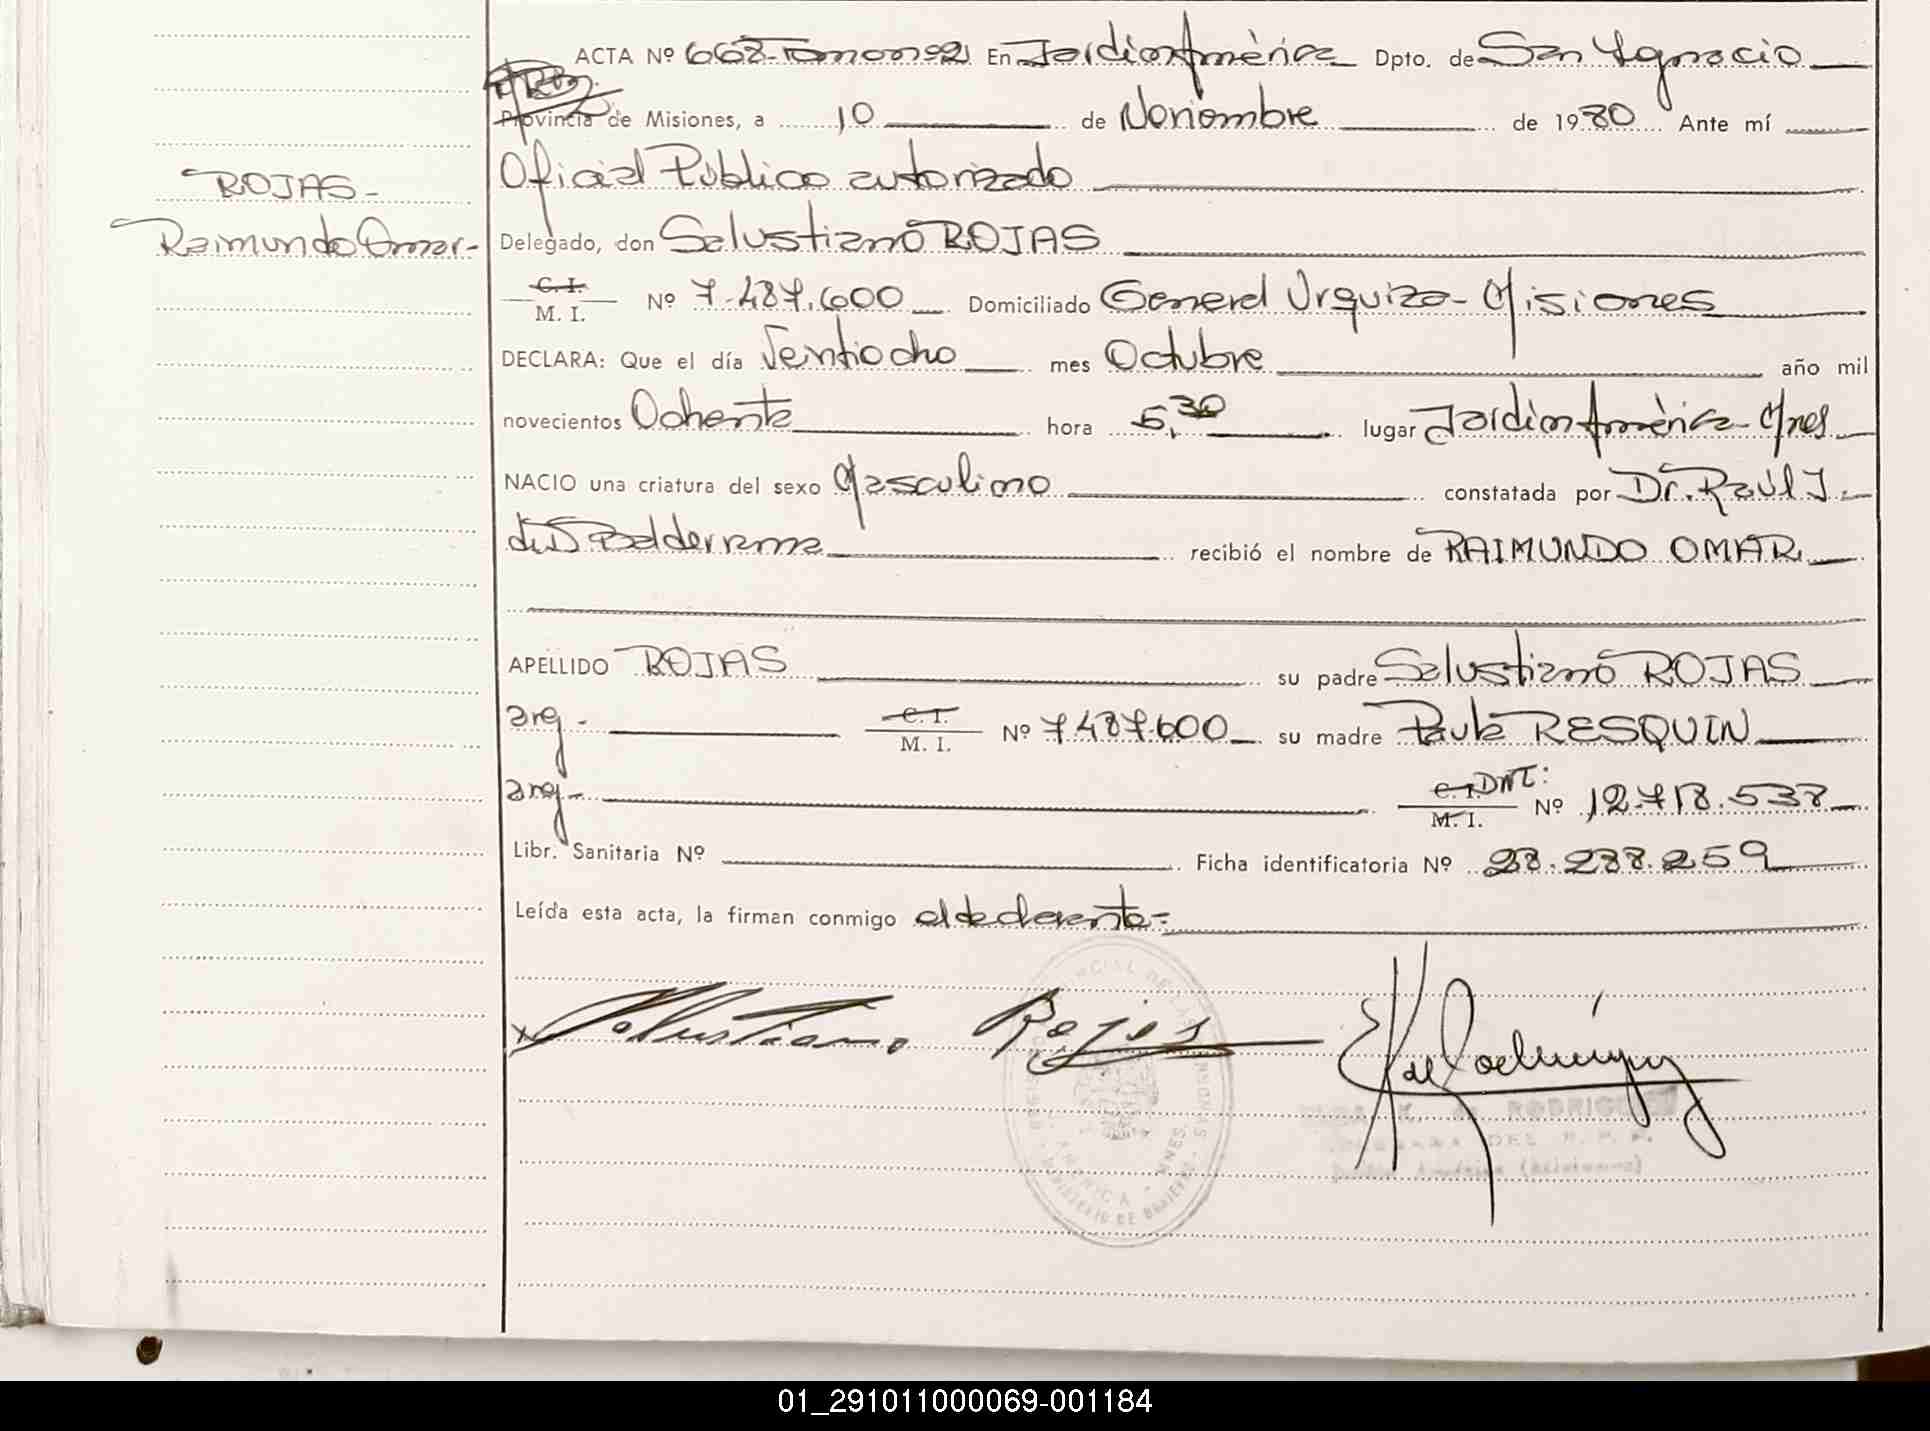 ACTA Nº 668-Tomo nº2 En Jardín América Dpto. de San Ignacio
Provincia de Misiones, a 10 de Noviembre de 1980 Ante mí
Oficial Público autorizado
ROJAS-
Raimundo Omar-
Delegado, don Salustiano ROJAS
C. I.
M. I. Nº 7.487.600 Domiciliado General Urquiza- Misiones
DECLARA: Que el día Veintiocho mes Octubre año mil
novecientos Ochenta hora 5,30 lugar Jardín América- Mnes
NACIO una criatura del sexo Masculino constatada por Dr. Raúl J.
Balderrama recibió el nombre de RAIMUNDO OMAR
APELLIDO ROJAS su padre Salustiano ROJAS
arg- C. I.
M. I. Nº 7.487.600 su madre Paula RESQUIN
arg- C. I. DNI:
M. I. Nº 12.718.538
Libr. Sanitaria Nº Ficha identificatoria Nº 28.288.259
Leída esta acta, la firman conmigo el declarante-
x Salustiano Rojas
K de Rodríguez
K. de RODRIGUEZ
DEL R. P. P.
Jardín América (Misiones)
MINISTERIO DE GOBIERNO
AMERICA - MNES.
01_291011000069-001184